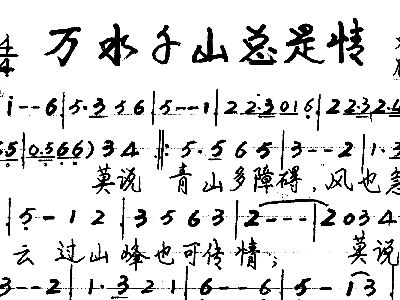 4/4 万水千山总是情
i--6|5·356|5--1|22·3016|223
5|0566)34‖:5·565|3--2|1·3
莫说 青山多障碍,风也急
5-12|3563|2---|2034
云 过山峰也可传情; 莫说
3--2|1·321|6--6|5-13